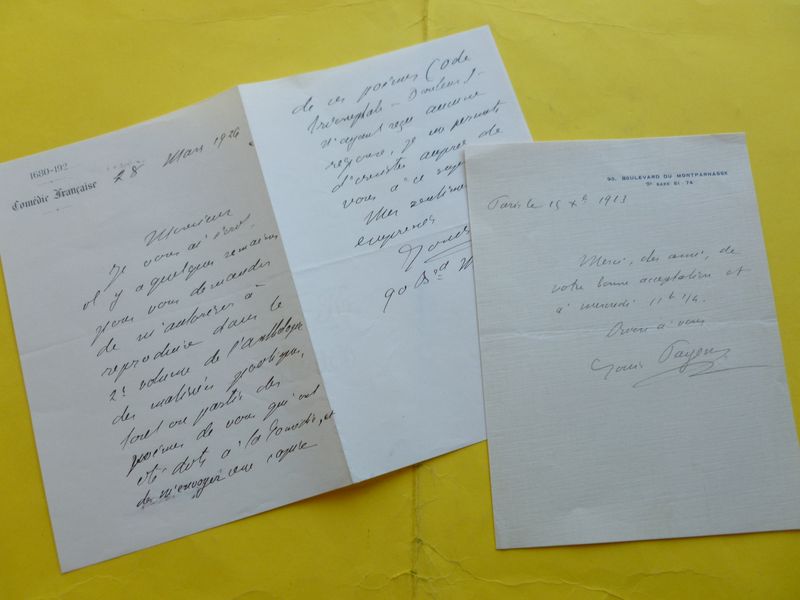 1680-192
Comédie Française
28 Mars 1926
Monsieur
Je vous ai écrit
il y a quelques semaines
pour vous demander
de m'autoriser à
reproduire dans le
2e volume de l'Anthologie
des matinées poétiques,
tout ou partie des
poèmes de vous qui ont
été dits à la Comédie, et
de m'envoyer une copie
de ces poèmes (Ode
triomphale -
N'ayant reçu aucune
réponse, je me permets
d'insister auprès de
vous à ce sujet
Mes
empressés
Louis
90 Bd
90, BOULEVARD DU MONTPARNASSE
Tél SAXE 81-74
Paris le 15 Xe 1913
Merci, cher ami, de
votre bonne acceptation et
à mercredi 11h 1/4.
Bien à vous
Louis Payen